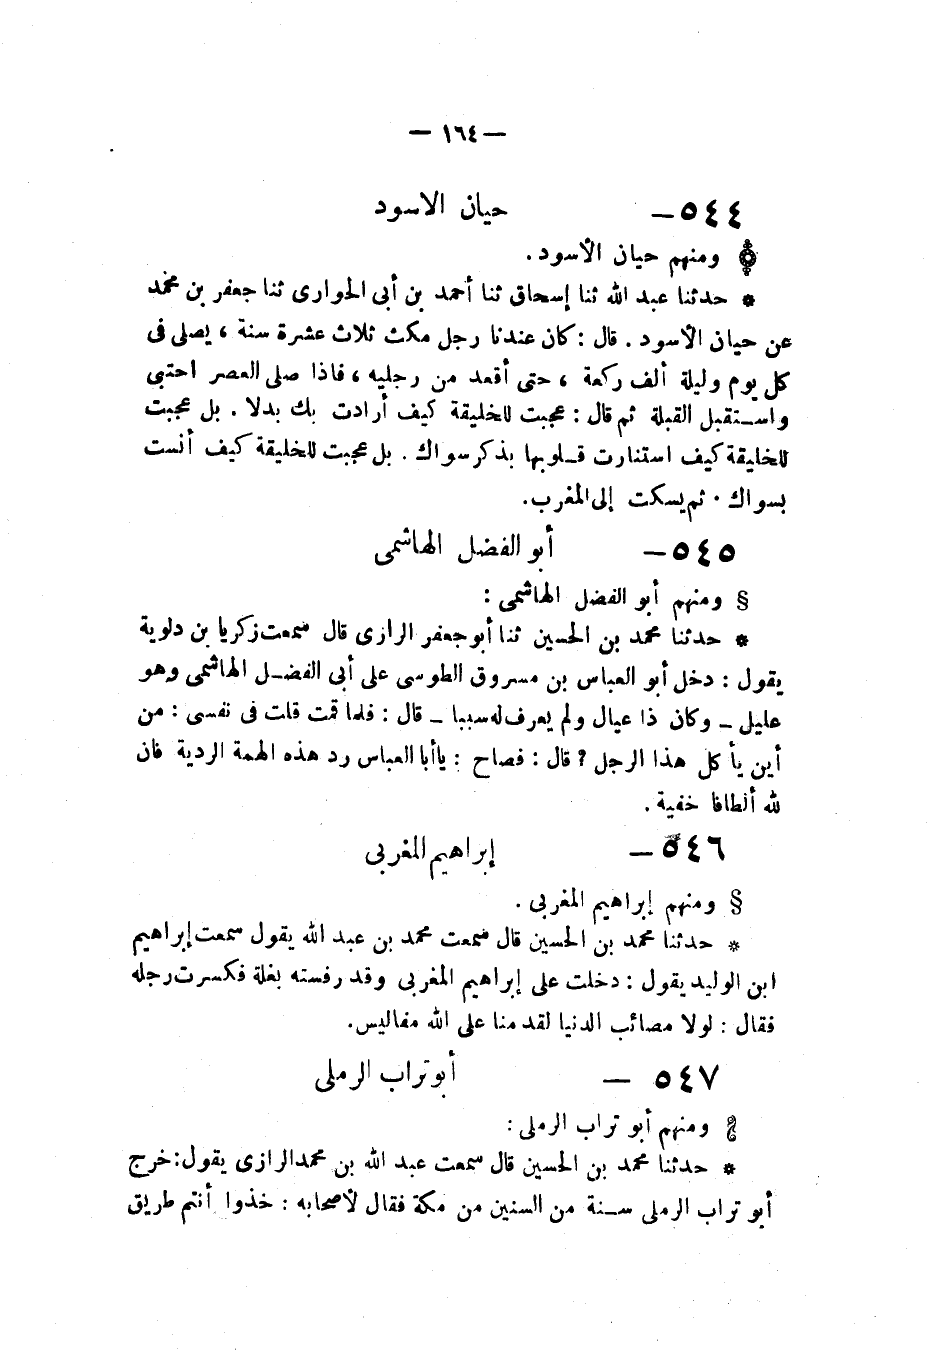 — ١٦٤ —
٥٤٤ — حيان الاسود
ومنهم حيان الأسود .
* حدثنا عبد الله ثنا إسحاق ثنا أحمد بن أبى الحوارى ثنا جعفر بن محمد
عن حيان الأسود . قال : كان عندنا رجل مكث ثلاث عشرة سنة ، يصلى فى
كل يوم وليلة ألف ركعة ، حتى أقعد من رجليه ، فاذا صلى العصر احتبى
واستقبل القبلة ثم قال : عجبت للخليقة كيف أرادت بك بدلا . بل عجبت
للخليقة كيف استنارت قلوبها بذكر سواك . بل عجبت للخليقة كيف أنست
بسواك . ثم يسكت إلى المغرب .
٥٤٥ — أبو الفضل الهاشمى
§ ومنهم أبو الفضل الهاشمى :
* حدثنا محمد بن الحسين ثنا أبو جعفر الرازى قال سمعت زكريا بن دلوية
يقول : دخل أبو العباس بن مسروق الطوسى على أبى الفضل الهاشمى وهو
عليل ــ وكان ذا عيال ولم يعرف له سببا ــ قال : فلما قمت قلت فى نفسى : من
أين يأكل هذا الرجل ? قال : فصاح : يا أبا العباس رد هذه الهمة الردية فان
لله ألطافا خفية .
٥٤٦ — إبراهيم المغربى
§ ومنهم إبراهيم المغربى .
* حدثنا محمد بن الحسين قال سمعت محمد بن عبد الله يقول سمعت إبراهيم
ابن الوليد يقول : دخلت على إبراهيم المغربى وقد رفسته بغلة فكسرت رجله
فقال : لولا مصائب الدنيا لقدمنا على الله مفاليس .
٥٤٧ — أبو تراب الرملى
ومنهم أبو تراب الرملى :
* حدثنا محمد بن الحسين قال سمعت عبد الله بن محمد الرازى يقول : خرج
أبو تراب الرملى سنة من السنين من مكة فقال لأصحابه : خذوا أنتم طريق